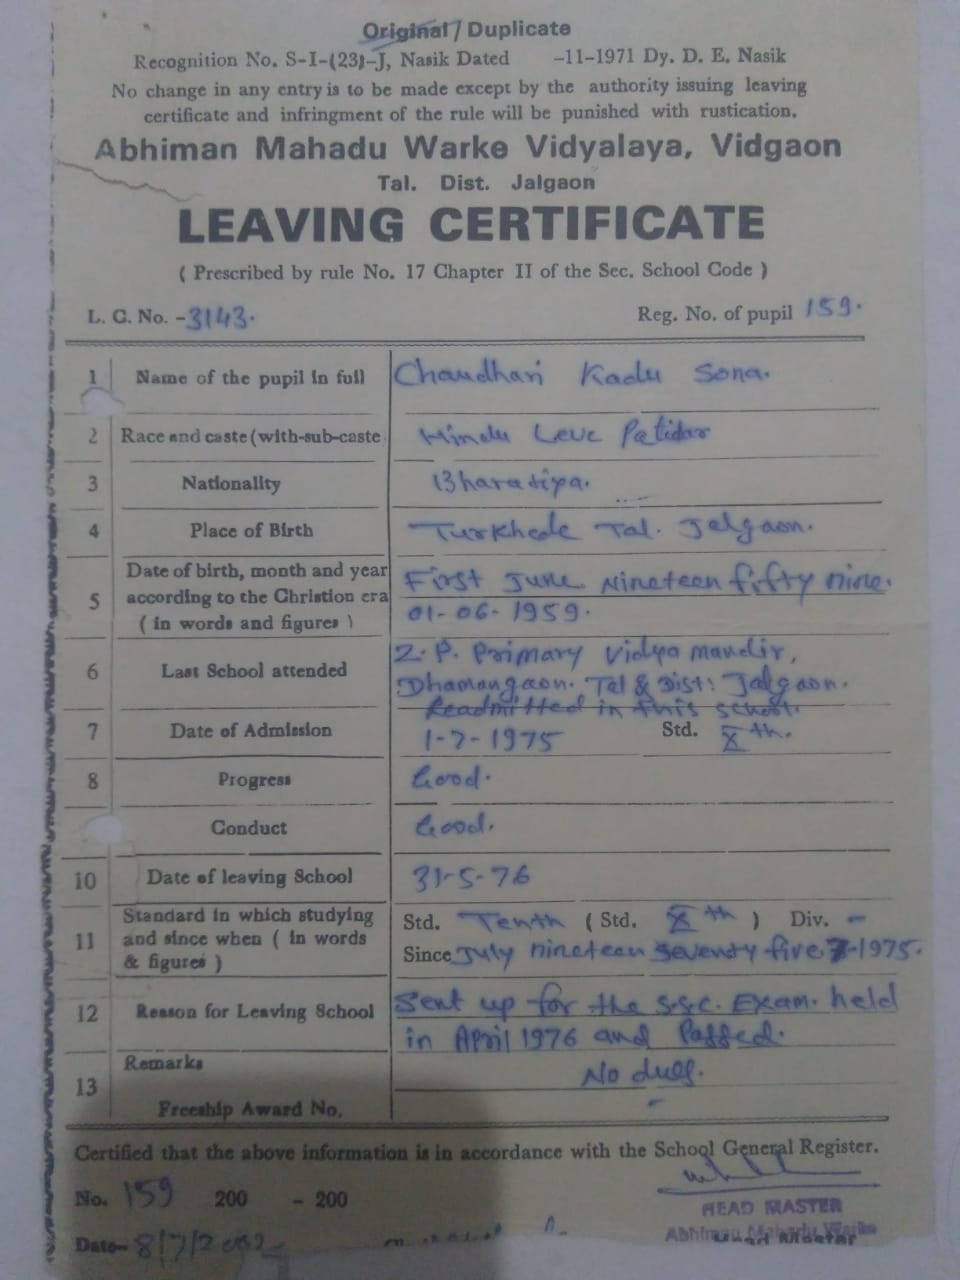 Original / Duplicate
Recognition No. S-I-(23)-J, Nasik Dated -11-1971 Dy. D. E. Nasik
No change in any entry is to be made except by the authority issuing leaving
certificate and infringment of the rule will be punished with rustication.
Abhiman Mahadu Warke Vidyalaya, Vidgaon
Tal. Dist. Jalgaon
LEAVING CERTIFICATE
( Prescribed by rule No. 17 Chapter II of the Sec. School Code )
L. C. No. - 3143. Reg. No. of pupil 159.
1 Name of the pupil in full Chaudhari Kadu Sona.
2 Race and caste (with-sub-caste Hindu Leve Patidar
3 Nationality Bharatiya.
4 Place of Birth Turkhede Tal. Jalgaon.
Date of birth, month and year First June Nineteen fifty nine.
5 according to the Christion era 01-06-1959.
( in words and figures )
6 Last School attended Z.P. Primary Vidya mandir,
Dhamangaon. Tal & Dist: Jalgaon.
Readmitted in this school.
7 Date of Admission 1-7-1975 Std. Xth.
8 Progress Good.
Conduct Good.
10 Date of leaving School 31-5-76
11 Standard in which studying Std. Tenth ( Std. Xth ) Div. -
and since when ( in words Since July nineteen seventy five 7-1975.
& figures )
12 Reason for Leaving School Sent up for the S.S.C. Exam. held
in April 1976 and Passed.
13 Remarks No dues.
Freeship Award No. -
Certified that the above information is in accordance with the School General Register.
No. 159 200 - 200
HEAD MASTER
Date- 8/7/2002 Abhiman Mahadu Warke
Head Master